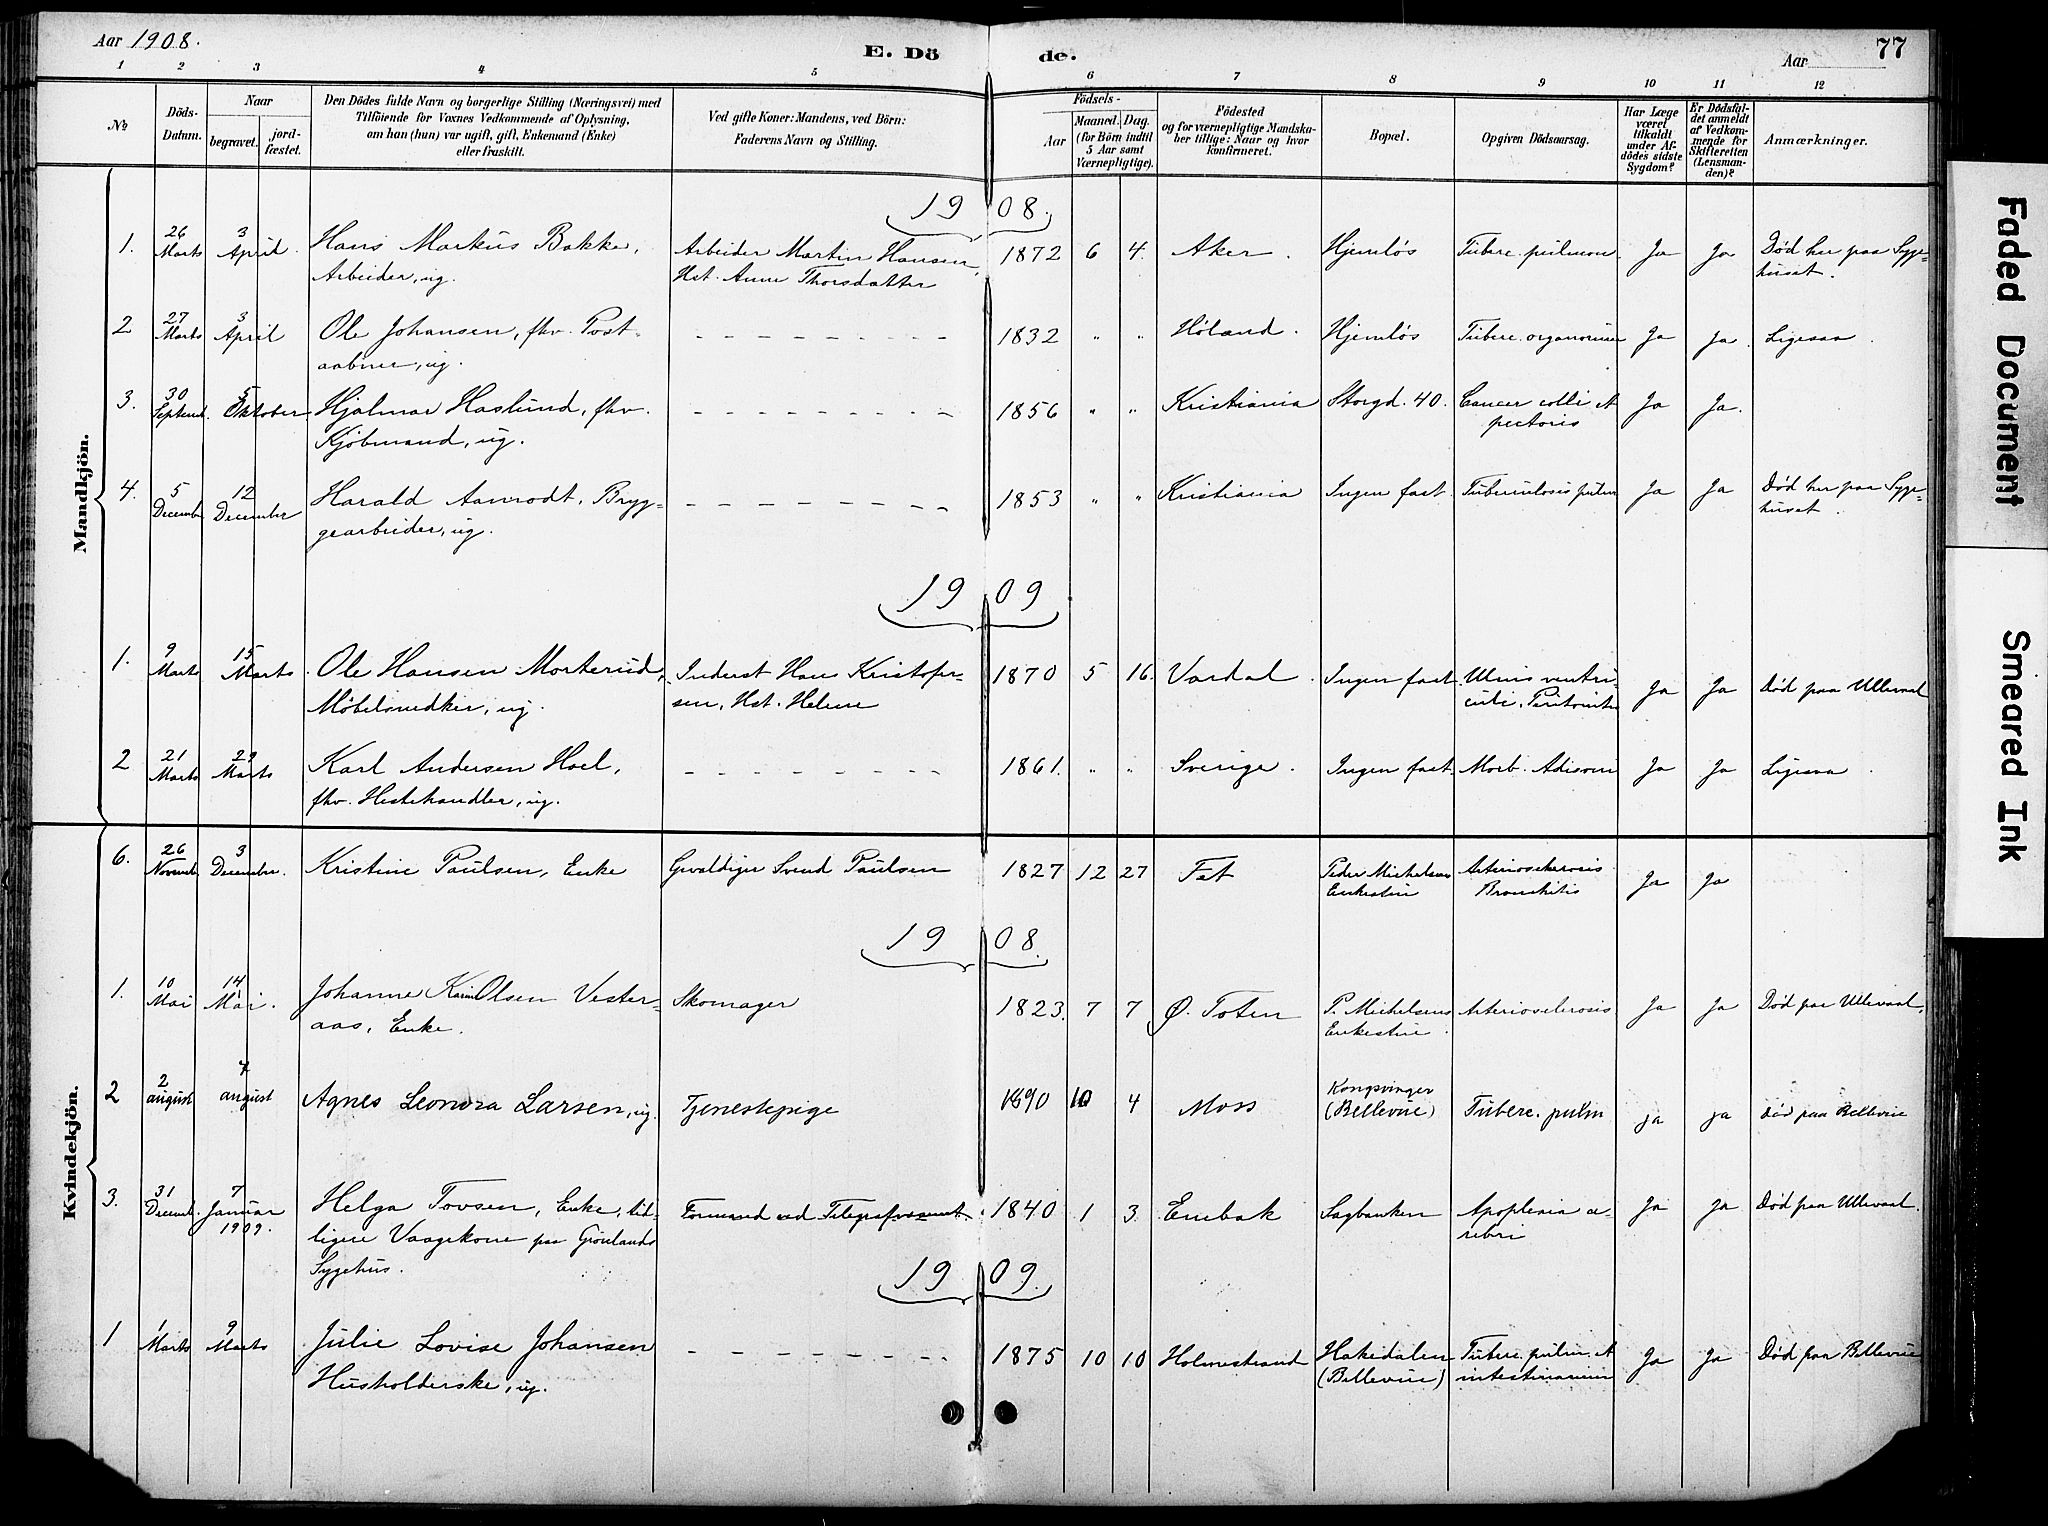 Aar 1908.
E. Dö de.
Aar
77
1 2 3 4 5 6 7 8 9 10 11 12
No
Döds-Datum.
Naar
begravet.
jord-fæstet.
Den Dödes fulde Navn og borgerlige Stilling (Næringsvei) med
Tilföiende for Voxnes Vedkommende af Oplysning,
om han (hun) var ugift, gift, Enkemand (Enke)
eller fraskilt.
Ved gifte Koner: Mandens, ved Börn:
Faderens Navn og Stilling.
Födsels-
Aar
Maaned. Dag.
(for Börn indtil
5 Aar samt
Værnepligtige).
Födested
og for værnepligtige Mandska-
ber tillige: Naar og hvor
konfirmeret.
Bopæl.
Opgiven Dödsaarsag.
Har Læge
været
tilkaldt
under Af-
dödes sidste
Sygdom?
Er Dödsfal-
det anmeldt
af Vedkom-
mende for
Skifteretten
(Lensman-
den)?
Anmærkninger.
Mandkjön.
1908.
1. 26 Marts 3 April. Hans Markus Bakke, Arbeider Martin Hansen, 1872 6 4. Aker. Hjemløs Tuberc. pulmon. Ja Ja Død her paa Syge-
Arbeider, ug. Hst. Anne Thorsdatter huset.
2 27 Marts 3 April Ole Johansen, fhv. Post- 1832 " " Høland. Hjemløs Tuberc. organorum Ja Ja. Ligesaa.
aabner, ug.
3. 30 Septemb. 5 Oktober Hjalmar Haslund, fhv. 1856 " " Kristiania Storgd. 40. Cancer colli et Ja Ja.
Kjöbmand, ug. pectoris
4. 5 December 12 December Harald Aamodt, Bryg- 1853 " " Kristiania Ingen fast Tuberculosis pulm Ja Ja Død her paa Syge-
gearbeider, ug. huset.
1909
1. 9 Marts 15 Marts. Ole Hansen Morterud, Inderst Hans Kristofer- 1870 5 16. Vardal. Ingen fast Ulcus ventri- Ja Ja Død paa Ullevaal
Møbelsnedker, ug. sen, Hst. Helene culi. Peritonitis
2 21 Marts 29 Marts Karl Andersen Hoel, 1861. " " Sverige. Ingen fast Morb. Adisoni Ja Ja Ligesaa.
fhv. Hestehandler, ug.
Kvindekjön.
6. 26 Novemb. 3 December. Kristine Paulsen, Enke Gevaldiger Svend Paulsen 1827 12 27 Fet Peder Michelsens Arteriosclerosis Ja Ja
Enkestue Bronchitis
1908.
1. 10 Mai 14 Mai. Johanne Karin Olsen Vester- Skomager 1823. 7 7 Ø. Toten P. Michelsens Arteriosclerosis Ja Ja Død paa Ullevaal.
aas, Enke. Enkestue.
2 2 august 4 august Agnes Leonora Larsen, ug. Tjenestepige 1890 10 4 Moss Kongsvinger Tuberc. pulm ja ja død paa Bellevue
(Bellevue)
3. 31 Decemb. 7 Januar Helga Tovsen, Enke, tid- Formand ved Telegrafvæsenet. 1840 1 3. Enebak Sagbanken Apoplexia ce- Ja Ja Død paa Ullevaal.
1909. ligere Vaagekone paa Grönlands rebri
Sygehus.
1909.
1 1 Marts 9 Marts Julie Lovise Johansen 1875 10 10 Holmestrand Hakedalen Tuberc. pulm. et Ja Ja Død paa Bellevue
Husholderske, ug. (Bellevue) intestinarum
Faded Document
Smeared Ink